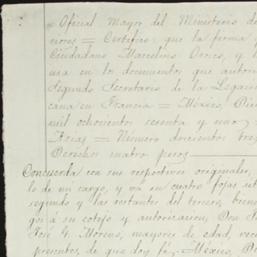 "Oficial Mayor del Ministerio de
ciones = Certifico, que la firma
Ciudadano Marcelino Ornes, y l
usa en los documentos que autori
Segundo Secretario de la Legacion
cana en Francia = México, Dici
mil ochocientos sesenta y uno
Arias = Número doscientos tres
Derechos cuatro pesos
Concuerda con sus respectivos originales,
lo de mi cargo, y va en cuatro fojas útiles
segundo y las restantes del tercero, bien
go á su cotejo y autorizacion, Don
José G. Moreno, mayores de edad, vec
presentes, de que doy fé, México, D